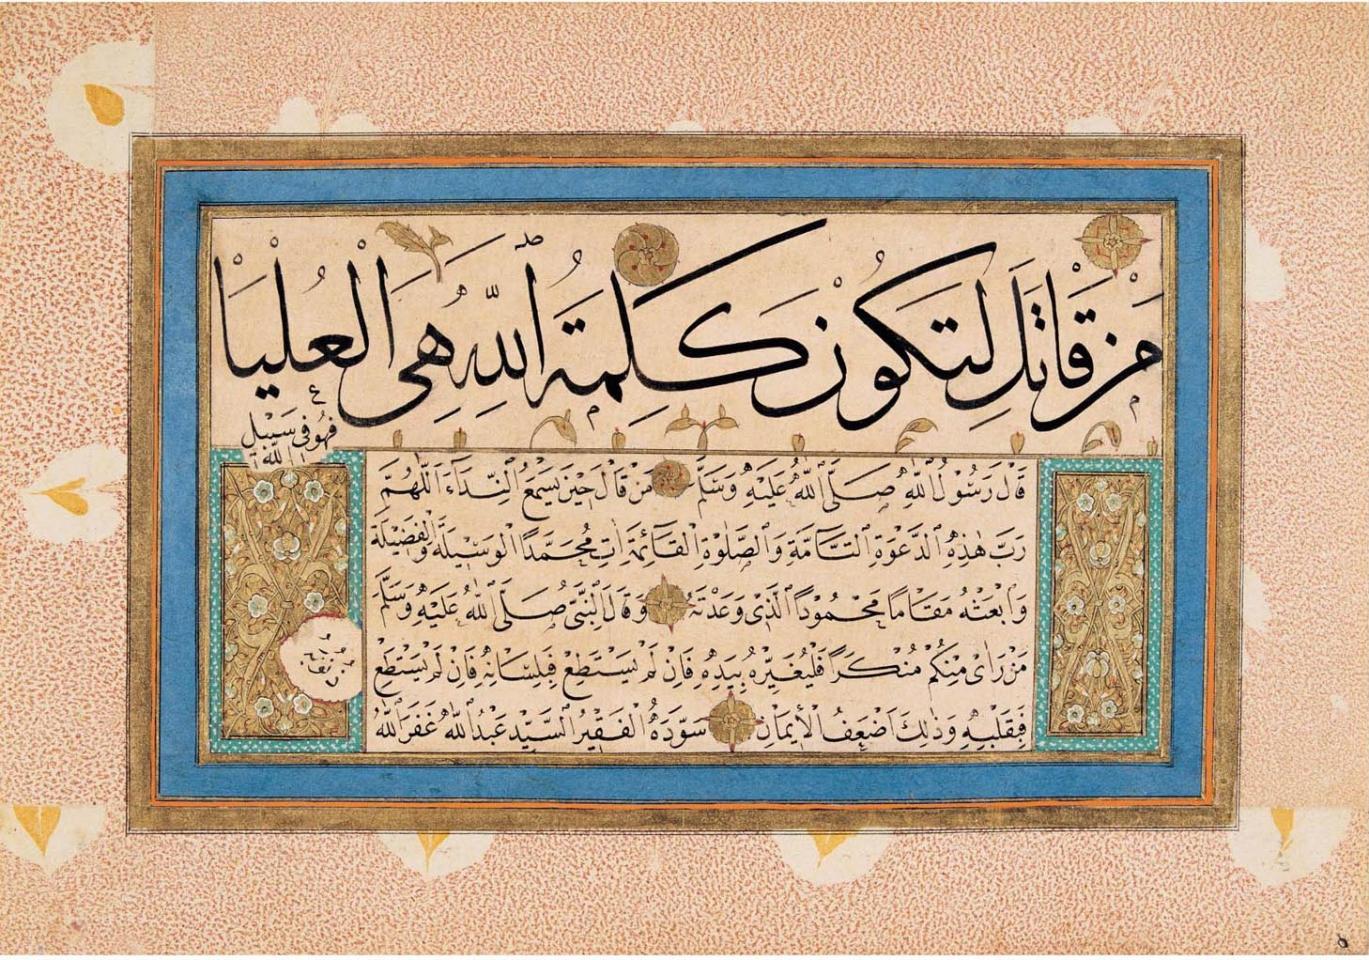 مَنْ قَاتَلَ لِتَكُونَ كَلِمَةُ اللهِ هِيَ الْعُلْيَا
فَهُوَ فِي سَبِيلِ
الله
قَالَ رَسُولُ اللهِ صَلَّى اللهُ عَلَيْهِ وَسَلَّمَ مَنْ قَالَ حِينَ يَسْمَعُ النِّدَاءَ اَللّٰهُمَّ
رَبَّ هٰذِهِ الدَّعْوَةِ التَّامَّةِ وَالصَّلٰوةِ الْقَائِمَةِ اٰتِ مُحَمَّدًا الْوَسِيلَةَ وَالْفَضِيلَةَ
وَابْعَثْهُ مَقَامًا مَحْمُودًا الَّذِي وَعَدْتَهُ وَقَالَ النَّبِيُّ صَلَّى اللهُ عَلَيْهِ وَسَلَّمَ
مَنْ رَاٰى مِنْكُمْ مُنْكَرًا فَلْيُغَيِّرْهُ بِيَدِهِ فَاِنْ لَمْ يَسْتَطِعْ فَبِلِسَانِهِ فَاِنْ لَمْ يَسْتَطِعْ
فَبِقَلْبِهِ وَذٰلِكَ اَضْعَفُ الْاِيمَانِ سَوَّدَهُ الْفَقِيرُ السَّيِّدْ عَبْدُ اللهِ غَفَرَ اللهُ
ذُنُوبَهُ